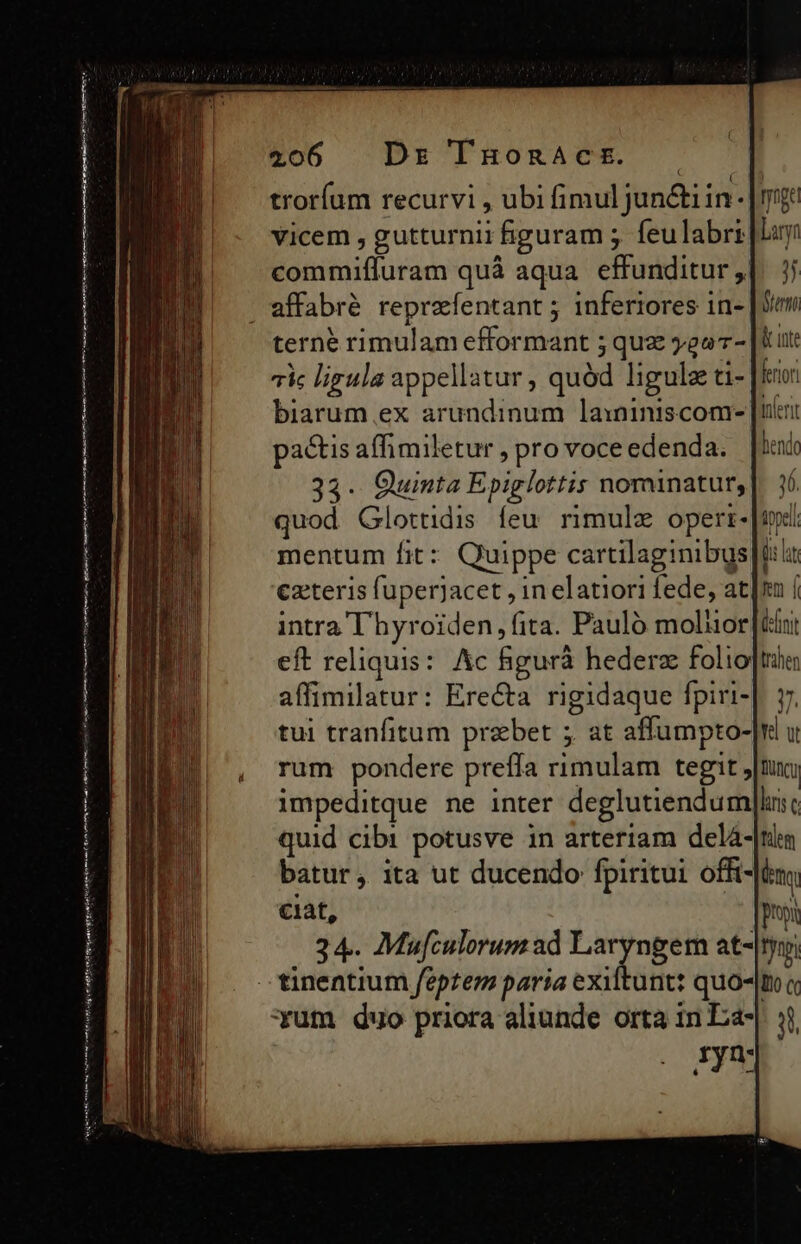 206 DE THORACE.
trorſum recurvi, ubi ſimul juncti in-
vicem, gutturnii figuram; ſeu labri
commiſſuram quâ aqua effunditur,
affabrè repræſentant; inferiores in-
ternè rimulam efformant; quæ γλωτ-
τὶς ligula appellatur, quòd ligulæ ti-
biarum ex arundinum laminis com-
pactis aſſimiletur, pro voce edenda.
33. Quinta Epiglottis nominatur,
quod Glottidis ſeu rimulæ operi-
mentum ſit: Quippe cartilaginibus
cæteris ſuperjacet, in elatiori ſede, at
intra Thyroïden, ſita. Paulò mollior
eſt reliquis: Ac figurâ hederæ folio
aſſimilatur: Erecta rigidaque ſpiri-
tui tranſitum præbet; at aſſumpto-
rum pondere preſſa rimulam tegit,
impeditque ne inter deglutiendum
quid cibi potusve in arteriam delá-
batur, ita ut ducendo ſpiritui offi-
ciat,
34. Muſculorum ad Laryngem at-
tinentium ſeptem paria exiſtunt: quo-
rum duo priora aliunde orta in La-
ryn-